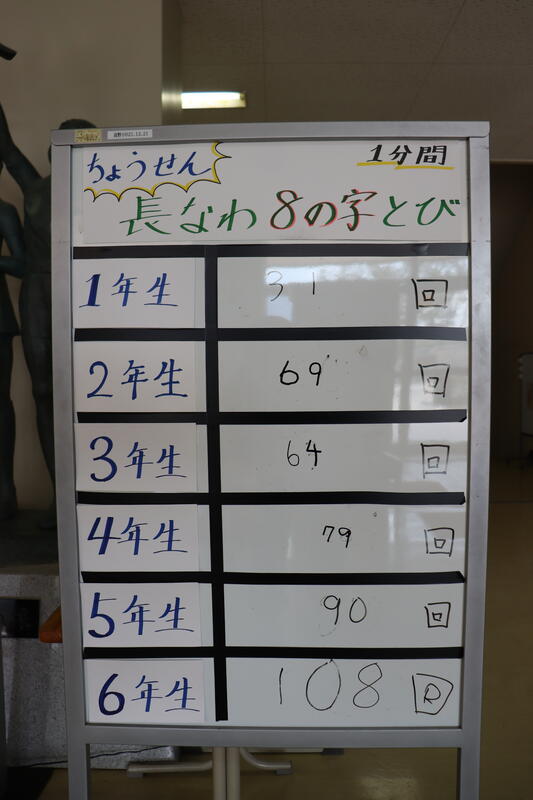 ちょうせん
1分間
長なわ8の字とび
1年生 31 回
2年生 69 回
3年生 64 回
4年生 79 回
5年生 90 回
6年生 108 回